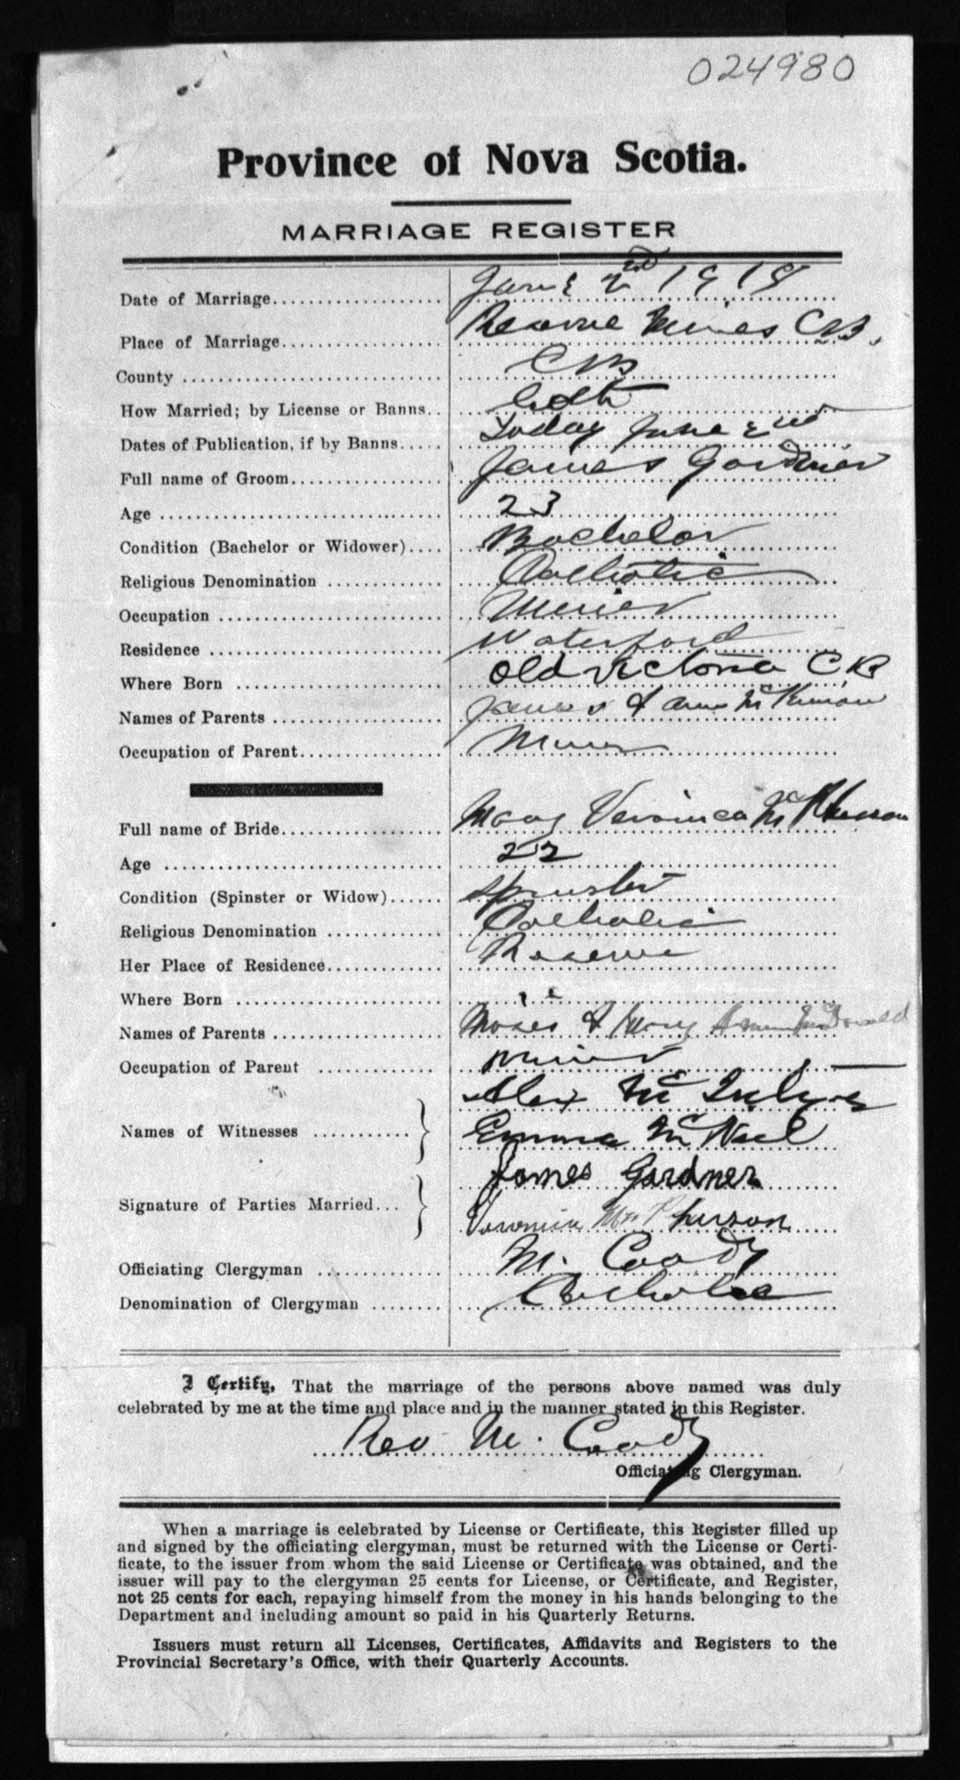 024980
Province of Nova Scotia.
MARRIAGE REGISTER
Date of Marriage.................. June 2nd 1918
Place of Marriage................. Reserve Mines CB.
County ............................ CB
How Married; by License or Banns..
Dates of Publication, if by Banns..... Today June 2nd
Full name of Groom................ James Gardner
Age ............................... 23
Condition (Bachelor or Widower).... Bachelor
Religious Denomination ............ Catholic
Occupation ........................ Miner
Residence ......................... Waterford
Where Born ...................... Old Victoria CB
Names of Parents .................. James & Ann McKinnon
Occupation of Parent............... Miner
Full name of Bride................. Mary Veronica McPherson
Age ............................... 22
Condition (Spinster or Widow)...... Spinster
Religious Denomination ............ Catholic
Her Place of Residence............. Reserve
Where Born ......................
Names of Parents .................. Moses & Mary Ann McDonald
Occupation of Parent ............. Miner
Alex McIntyre
Names of Witnesses ...........
Emma McNeil
James Gardner
Signature of Parties Married...
Veronica McPherson
Officiating Clergyman .............. M. Coady
Denomination of Clergyman ........ Catholic
I Certify, That the marriage of the persons above named was duly
celebrated by me at the time and place and in the manner stated in this Register.
Rev M. Coady
Officiating Clergyman.
When a marriage is celebrated by License or Certificate, this Register filled up
and signed by the officiating clergyman, must be returned with the License or Certi-
ficate, to the issuer from whom the said License or Certificate was obtained, and the
issuer will pay to the clergyman 25 cents for License, or Certificate, and Register,
not 25 cents for each, repaying himself from the money in his hands belonging to the
Department and including amount so paid in his Quarterly Returns.
Issuers must return all Licenses, Certificates, Affidavits and Registers to the
Provincial Secretary's Office, with their Quarterly Accounts.